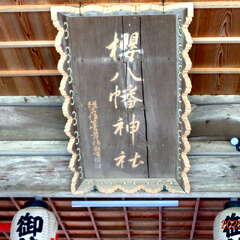 櫻八幡神社
御
御